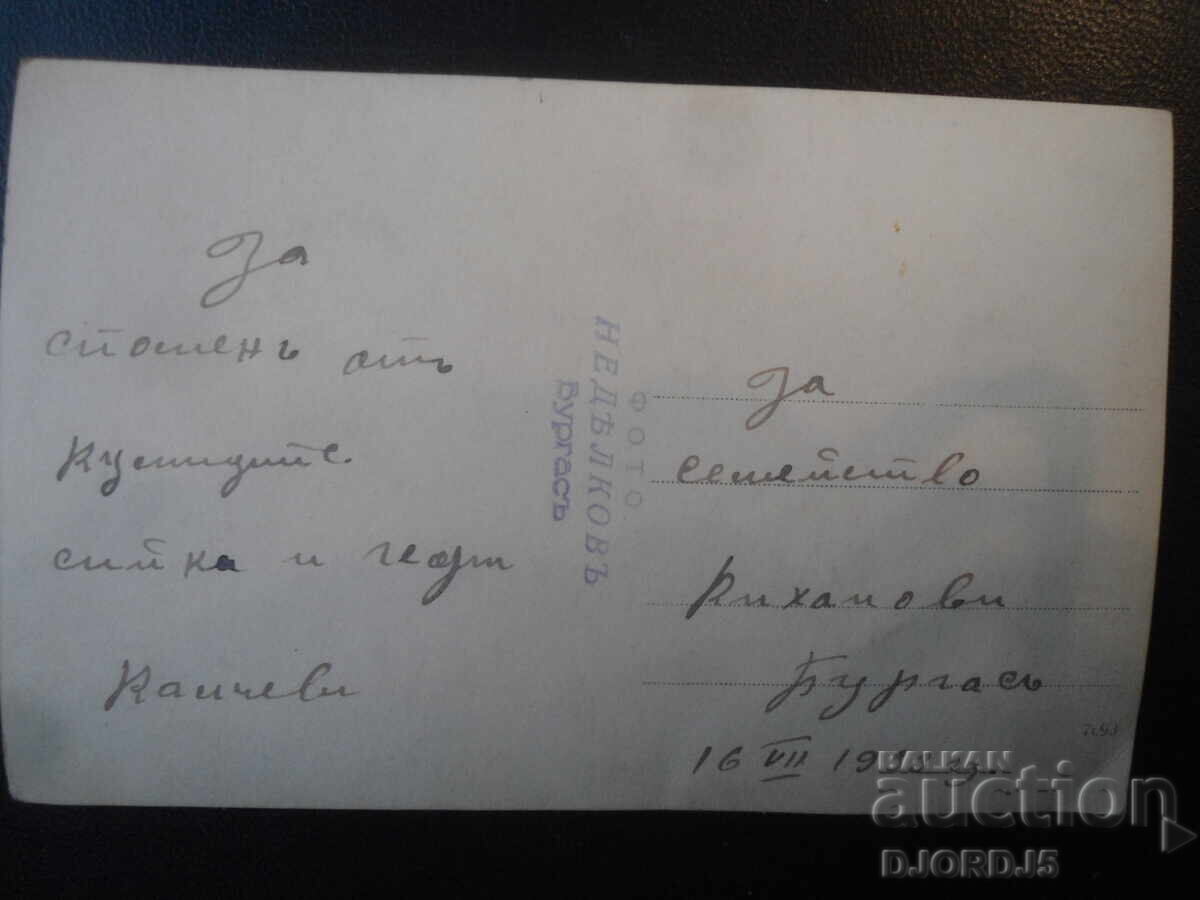 За
споменъ отъ
Кумиците
сийка и георги
Канчеви
ФОТО
НЕДѢЛКОВЪ
Бургасъ
За
семейство
Киханови
Бургасъ
16 VII 19
7693
BALKAN
auction
DJORDJ5